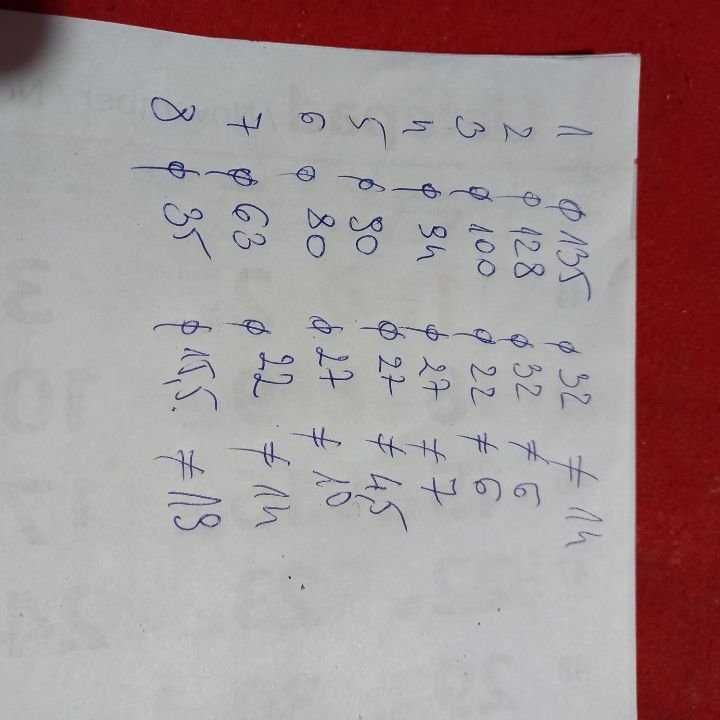 1 ϕ 135 ϕ 32 ≠ 14
2 ϕ 128 ϕ 32 ≠ 6
3 ϕ 100 ϕ 22 ≠ 6
4 ϕ 94 ϕ 27 ≠ 7
5 ϕ 90 ϕ 27 ≠ 4,5
6 ϕ 80 ϕ 27 ≠ 10
7 ϕ 63 ϕ 22 ≠ 14
8 ϕ 35 ϕ 15,5 ≠ 19